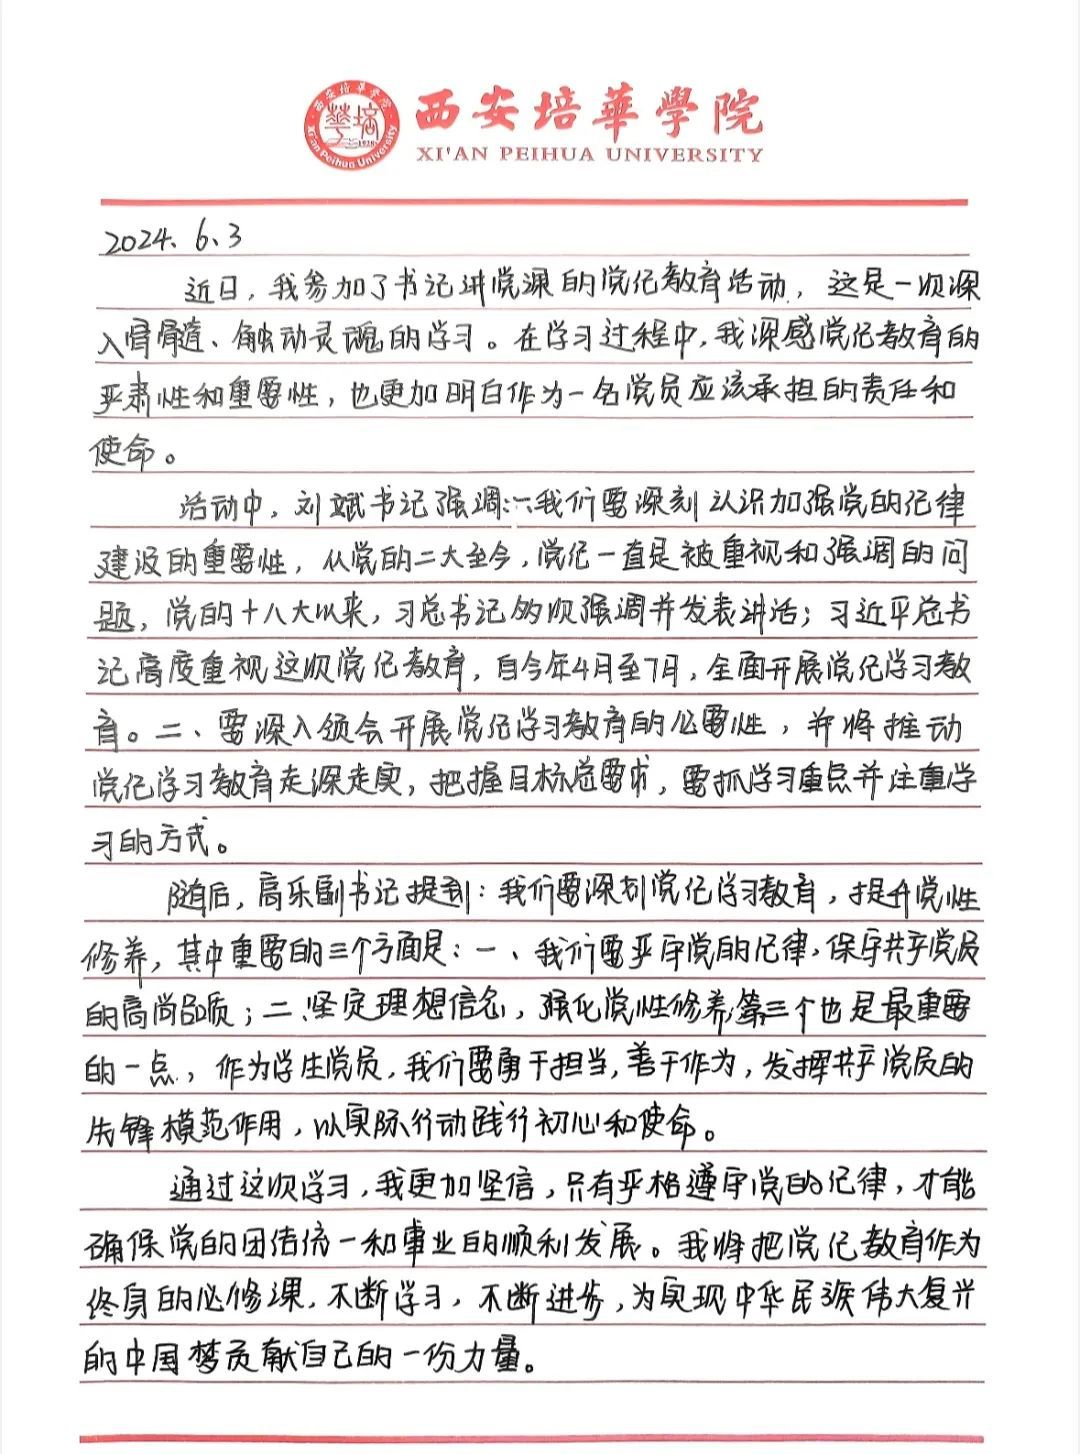 西安培華學院
XI'AN PEIHUA UNIVERSITY
西安培華学院
華培
1928
Xi'an Peihua University
2024、6、3
近日，我参加了书记讲党课的党纪教育活动，这是一次深
入骨髓、触动灵魂的学习。在学习过程中，我深感党纪教育的
严肃性和重要性，也更加明白作为一名党员应该承担的责任和
使命。
活动中，刘斌书记强调：一、我们要深刻认识加强党的纪律
建设的重要性，从党的二大至今，党纪一直是被重视和强调的问
题，党的十八大以来，习总书记多次强调并发表讲话；习近平总书
记高度重视这次党纪教育，自今年4月至7月，全面开展党纪学习教
育。二、要深入领会开展党纪学习教育的必要性，并将推动
党纪学习教育走深走实，把握目标总要求，要抓学习重点并注重学
习的方式。
随后，高乐副书记提到：我们要深刻党纪学习教育，提升党性
修养，其中重要的三个方面是：一、我们要严守党的纪律，保守共产党员
的高尚品质；二、坚定理想信念，强化党性修养；第三个也是最重要
的一点，作为学生党员，我们要勇于担当，善于作为，发挥共产党员的
先锋模范作用，以实际行动践行初心和使命。
通过这次学习，我更加坚信，只有严格遵守党的纪律，才能
确保党的团结统一和事业的顺利发展。我将把党纪教育作为
终身的必修课，不断学习，不断进步，为实现中华民族伟大复兴
的中国梦贡献自己的一份力量。